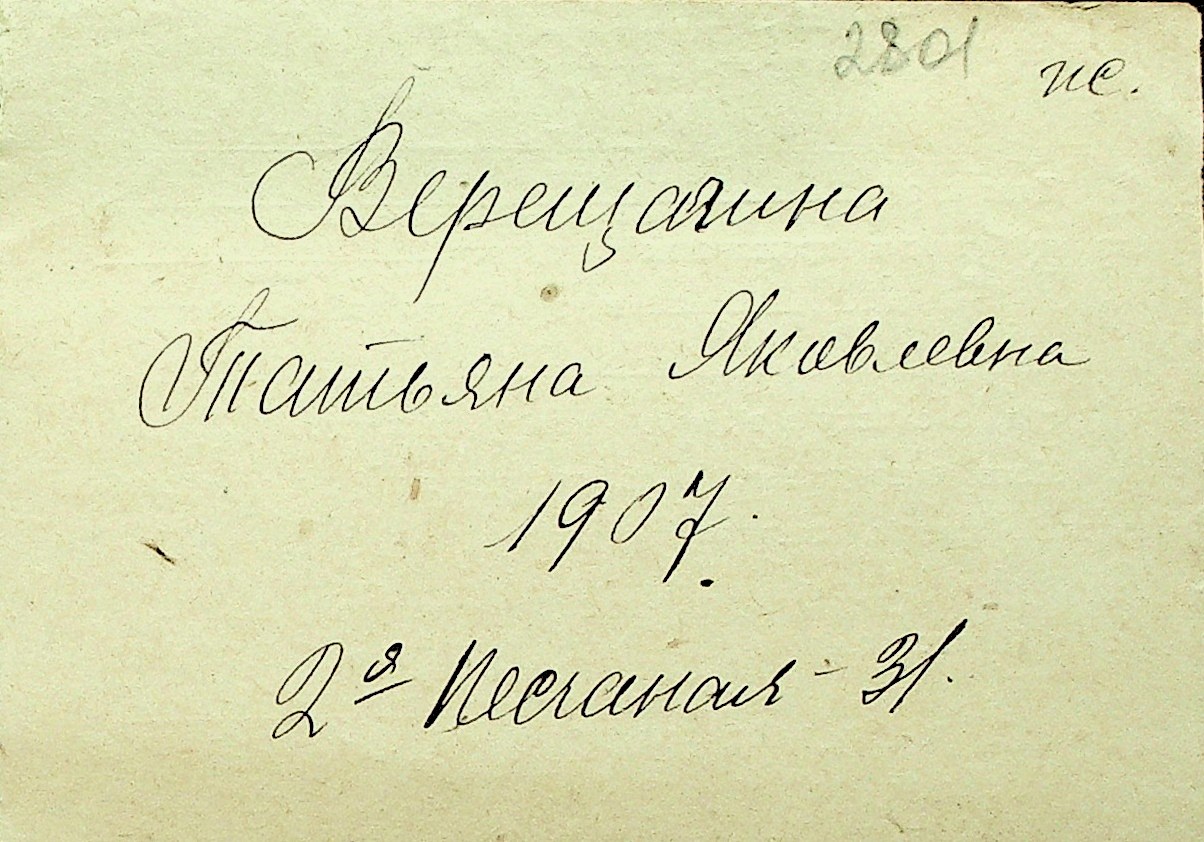 2801 пс.
Верещагина
Татьяна Яковлевна
1907.
2я Песчаная - 31.